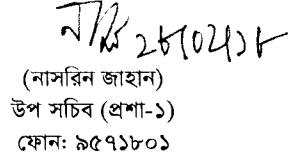 ২৮/০২/১৮
(নাসরিন জাহান)
উপ সচিব (প্রশা-১)
ফোন: ৯৫৭১৮০১